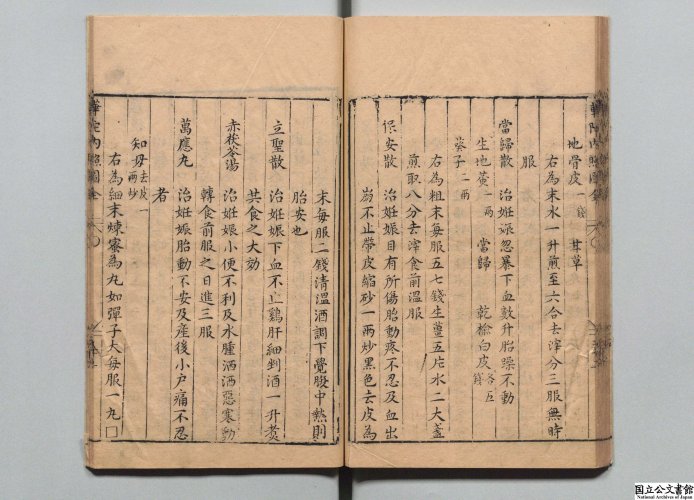 地骨皮一錢 甘草
右為末水一升煎至六合去滓分三服無時
服
當歸散 治姙娠忽暴下血數升胎躁不動
生地黃一兩 當歸 乾榆白皮各五錢
葵子二兩
右為粗末每服五七錢生薑五片水二大盞
煎取八分去滓食前溫服
保安散 治姙娠目有所傷胎動疼不忍及血出
崩不止帶皮縮砂一兩炒黑色去皮為
末每服二錢清溫酒調下覺腹中熱則
胎安也
立聖散 治姙娠下血不止鷄肝細剉酒一升煮
共食之大効
赤茯苓湯 治姙娠小便不利及水腫洒洒惡寒動
轉食前服之日進三服
萬應丸 治姙娠胎動不安及產後小戶痛不忍
者
知母去皮一兩炒
右為細末煉蜜為丸如彈子大每服一丸□
華陀內照圖全
国立公文書館
National Archives of Japan